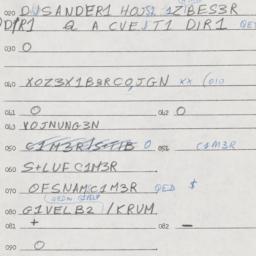 020 DJSANDER1 HOJS1 1ZIBES3R
DIR1 & A CVEJT1 DIR1 QED
030 O
040 XOZ3X1B3RCOJGN XX (010
041 O 042 O
043 VOJNUNG3N
050 C1M3R/S+TIB O 051 C1M3R
060 S+LUFC1M3R
070 OFSNAMC1M3R QED $
080 G1VELB2 /KRUM
081 + 082 –
090 O